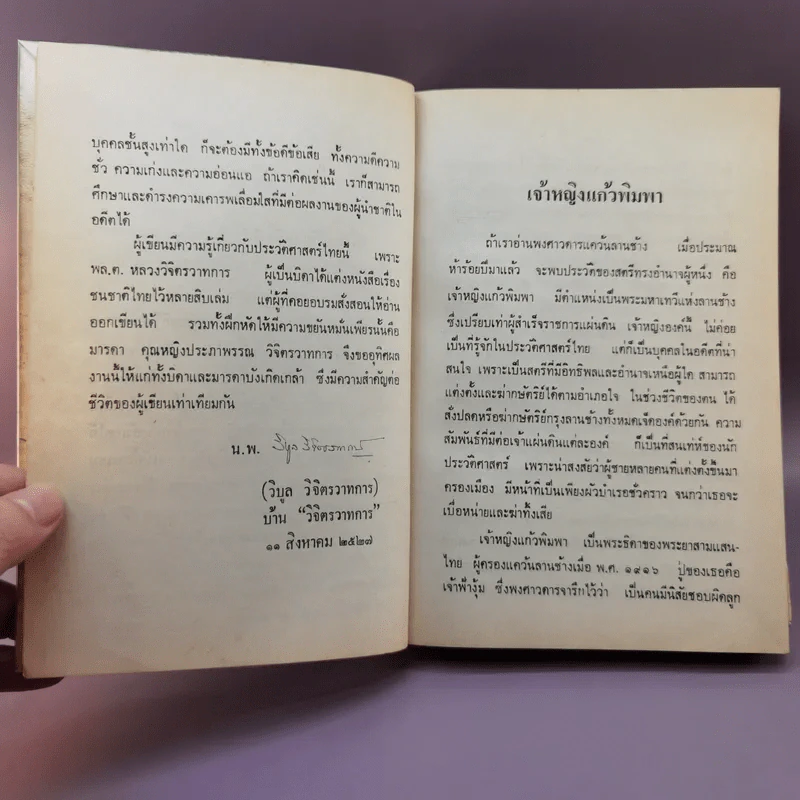 บุคคลชั้นสูงเท่าใด ก็จะต้องมีทั้งข้อดีข้อเสีย ทั้งความดีความ
ชั่ว ความเก่งและความอ่อนแอ ถ้าเราคิดเช่นนี้ เราก็สามารถ
ศึกษาและดำรงความเคารพเลื่อมใสที่มีต่อผลงานของผู้นำชาติใน
อดีตได้
ผู้เขียนมีความรู้เกี่ยวกับประวัติศาสตร์ไทยนี้ เพราะ
พล.ต. หลวงวิจิตรวาทการ ผู้เป็นบิดาได้แต่งหนังสือเรื่อง
ชนชาติไทยไว้หลายสิบเล่ม แต่ผู้ที่คอยอบรมสั่งสอนให้อ่าน
ออกเขียนได้ รวมทั้งฝึกหัดให้มีความขยันหมั่นเพียรนั้นคือ
มารดา คุณหญิงประภาพรรณ วิจิตรวาทการ จึงขออุทิศผล
งานนี้ให้แก่ทั้งบิดาและมารดาบังเกิดเกล้า ซึ่งมีความสำคัญต่อ
ชีวิตของผู้เขียนเท่าเทียมกัน
น.พ. วิบูล วิจิตรวาทการ
(วิบูล วิจิตรวาทการ)
บ้าน “วิจิตรวาทการ”
๑๑ สิงหาคม ๒๕๒๗
เจ้าหญิงแก้วพิมพา
ถ้าเราอ่านพงศาวดารแคว้นลานช้าง เมื่อประมาณ
ห้าร้อยปีมาแล้ว จะพบประวัติของสตรีทรงอำนาจผู้หนึ่ง คือ
เจ้าหญิงแก้วพิมพา มีตำแหน่งเป็นพระมหาเทวีแห่งลานช้าง
ซึ่งเปรียบเท่าผู้สำเร็จราชการแผ่นดิน เจ้าหญิงองค์นี้ ไม่ค่อย
เป็นที่รู้จักในประวัติศาสตร์ไทย แต่ก็เป็นบุคคลในอดีตที่น่า
สนใจ เพราะเป็นสตรีที่มีอิทธิพลและอำนาจเหนือผู้ใด สามารถ
แต่งตั้งและฆ่ากษัตริย์ได้ตามอำเภอใจ ในช่วงชีวิตของตน ได้
สั่งปลดหรือฆ่ากษัตริย์กรุงลานช้างทั้งหมดเจ็ดองค์ด้วยกัน ความ
สัมพันธ์ที่มีต่อเจ้าแผ่นดินแต่ละองค์ ก็เป็นที่สนเท่ห์ของนัก
ประวัติศาสตร์ เพราะน่าสงสัยว่าผู้ชายหลายคนที่แต่งตั้งขึ้นมา
ครองเมือง มีหน้าที่เป็นเพียงผัวบำเรอชั่วคราว จนกว่าเธอจะ
เบื่อหน่ายและฆ่าทิ้งเสีย
เจ้าหญิงแก้วพิมพา เป็นพระธิดาของพระยาสามแสน-
ไทย ผู้ครองแคว้นลานช้างเมื่อ พ.ศ. ๑๙๑๖ ปู่ของเธอคือ
เจ้าฟ้างุ้ม ซึ่งพงศาวดารจารึกไว้ว่า เป็นคนมีนิสัยชอบผิดลูก